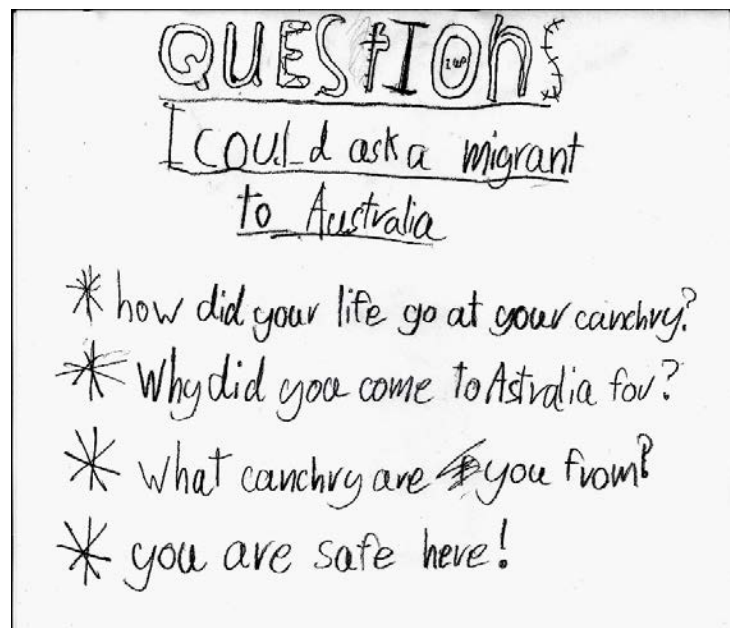 QUEStIOns
I could ask a migrant
to Australia
* how did your life go at your canchry?
* Why did you come to Astralia for?
* What canchry are you from?
* you are safe here!